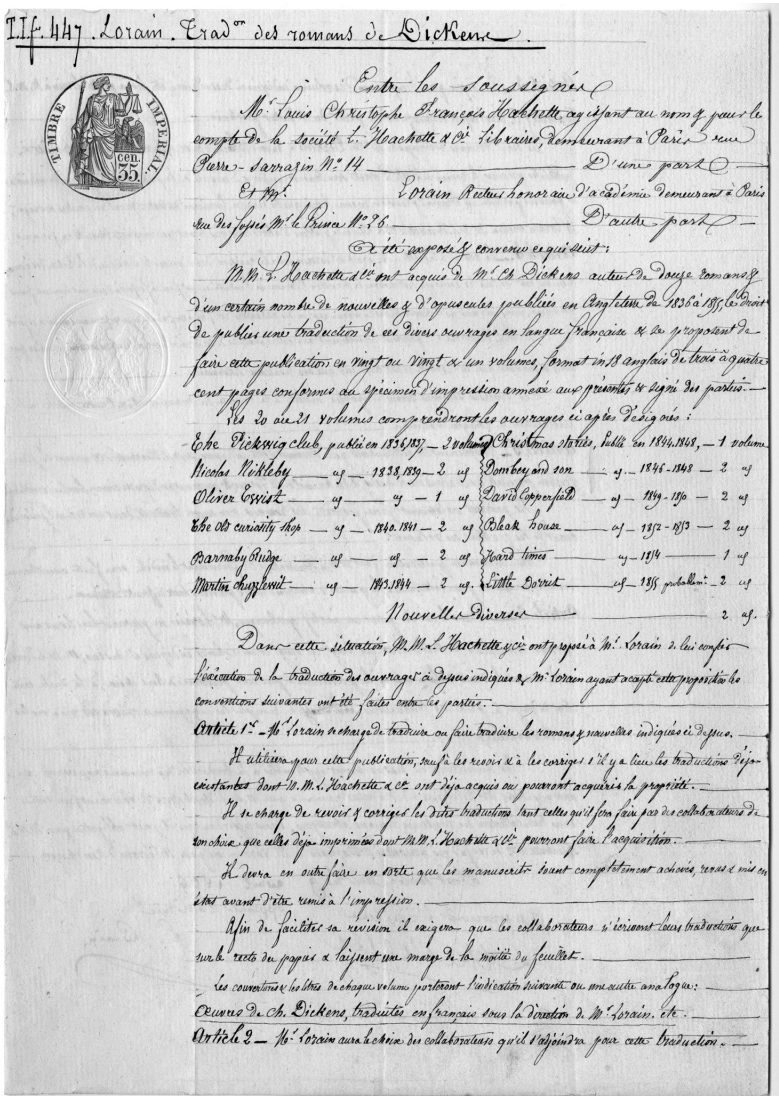 T.I.f. 447. Lorain. Trad.on des romans de Dickens.
TIMBRE IMPERIAL
cen.
35
Entre les soussignés
Mr. Louis Christophe François Hachette, agissant au nom & pour le
compte de la société L. Hachette & Cie. Libraires, demeurant à Paris rue
Pierre-Sarrazin No. 14 D'une part
Et Mr. Lorain Recteur honoraire d'académie demeurant à Paris
rue des fossés Mr. le Prince No. 26 D'autre part
a été exposé & convenu ce qui suit:
M.M. L. Hachette & Cie. ont acquis de Mr. Ch. Dickens auteur de douze romans &
d'un certain nombre de nouvelles & d'opuscules publiés en Angleterre de 1836 à 1855, le droit
de publier une traduction de ces divers ouvrages en langue française & se proposent de
faire cette publication en vingt ou vingt & un volumes, format in 18 anglais de trois à quatre
cent pages conformes au spécimen d'impression annexé aux présentes & signé des parties.
Les 20 ou 21 volumes comprendront les ouvrages ci après désignés:
The Pickwig club, publié en 1836, 1837, — 2 volumes Christmas stories, publié en 1844.1848, — 1 volume
Nicolas Nikleby — ug — 1838, 1839 — 2 ug Dombey and son — ug — 1846-1848 — 2 ug
Oliver Twist — ug — ug — 1 ug David Copperfield — ug — 1849-1850 — 2 ug
The old curiosity shop — ug — 1840.1841 — 2 ug Bleak house — ug — 1852-1853 — 2 ug
Barnaby Rudge — ug — ug — 2 ug Hard times — ug — 1854 — 1 ug
Martin chuzzlewit — ug — 1843.1844 — 2 ug Little Dorrit — ug — 1855 probablemt. — 2 ug
Nouvelles diverses — 2 ug.
Dans cette situation, M.M. L. Hachette & Cie. ont proposé à Mr. Lorain de lui confier
l'exécution de la traduction des ouvrages ci dessus indiqués & Mr. Lorain ayant accepté cette proposition les
conventions suivantes ont été faites entre les parties.
Article 1er. — Mr. Lorain se charge de traduire ou faire traduire les romans & nouvelles indiqués ci dessus.
Il utilisera pour cette publication, sauf à les revoir & à les corriger s'il y a lieu les traductions déjà
existantes dont M.M. L. Hachette & Cie. ont déjà acquis ou pourront acquérir la propriété.
Il se charge de revoir & corriger les dites traductions tant celles qu'il fera faire par des collaborateurs de
son choix que celles déjà imprimées dont M.M. L. Hachette & Cie. pourront faire l'acquisition.
Il devra en outre faire en sorte que les manuscrits soient complètement achevés, revus & mis en
état avant d'être remis à l'impression.
Afin de faciliter sa révision il exigera que les collaborateurs n'écrivent leurs traductions que
sur le recto du papier & laissent une marge de la moitié du feuillet.
Les couvertures & les titres de chaque volume porteront l'indication suivante ou une autre analogue:
Œuvres de Ch. Dickens, traduites en français sous la direction de Mr. Lorain. etc.
Article 2 — Mr. Lorain aura le choix des collaborateurs qu'il s'adjoindra pour cette traduction.